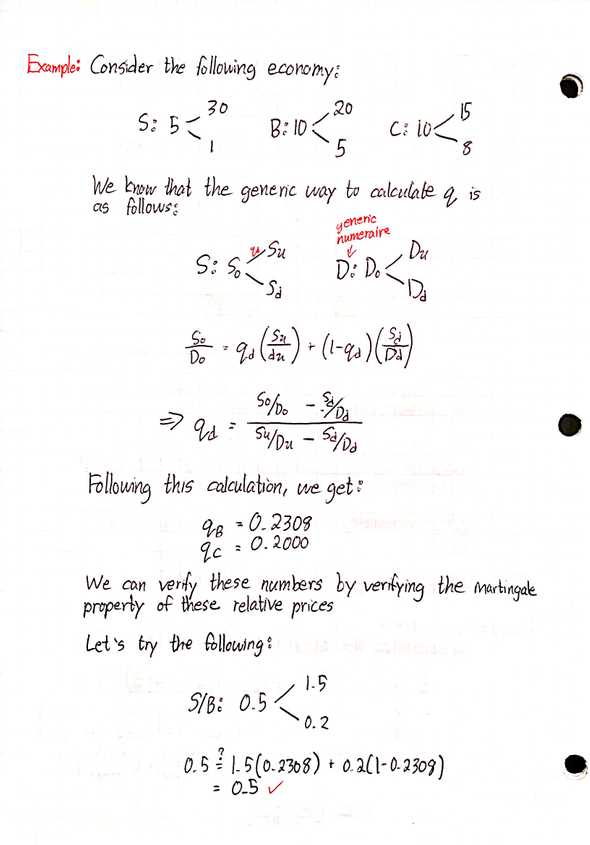 Example: Consider the following economy:
S: 5 30 1 B: 10 20 5 C: 10 15 8
We know that the generic way to calculate q is
as follows:
generic
numeraire
S: S₀ qd Su Sd D: D₀ Du Dd
S₀/D₀ = qd (Su/du) + (1-qd) (Sd/Dd)
⇒ qd = (S₀/D₀ - Sd/Dd) / (Su/Du - Sd/Dd)
Following this calculation, we get:
qB = 0.2308
qC = 0.2000
We can verify these numbers by verifying the martingale
property of these relative prices
Let's try the following:
S/B: 0.5 1.5 0.2
0.5 ≟ 1.5(0.2308) + 0.2(1-0.2308)
= 0.5 ✓